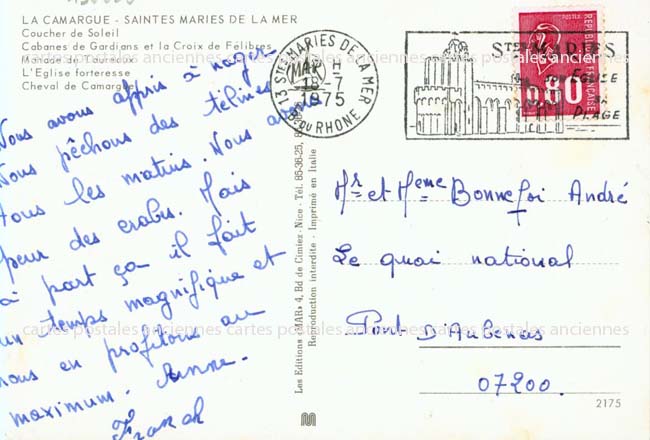 LA CAMARGUE - SAINTES MARIES DE LA MER
Coucher de Soleil
Cabanes de Gardians et la Croix de Félibres
Manade de Taureaux
L'Eglise forteresse
Cheval de Camargue
Nous avons appris à nager.
Nous pêchons des télines
tous les matins. Nous avons
peur des crabes. Mais
à part ça il fait
un temps magnifique et
nous en profitons au
maximum. Anne.
Franck
13 STES MARIES DE LA MER
18-7
1975
BS DU RHONE
STES MARIES
EGLISE
PLAGE
POSTES
FRANÇAISE
0.80
Les Editions «MAR» 4, Bd de Cimiez - Nice - Tél. 85-38-25,
Reproduction interdite - Imprimé en Italie
Mr et Meme Bonnefoi André
Le quai national
Pont D'Aubenas
07200.
2175
cartes postales anciennes cartes postales anciennes cartes postales anciennes